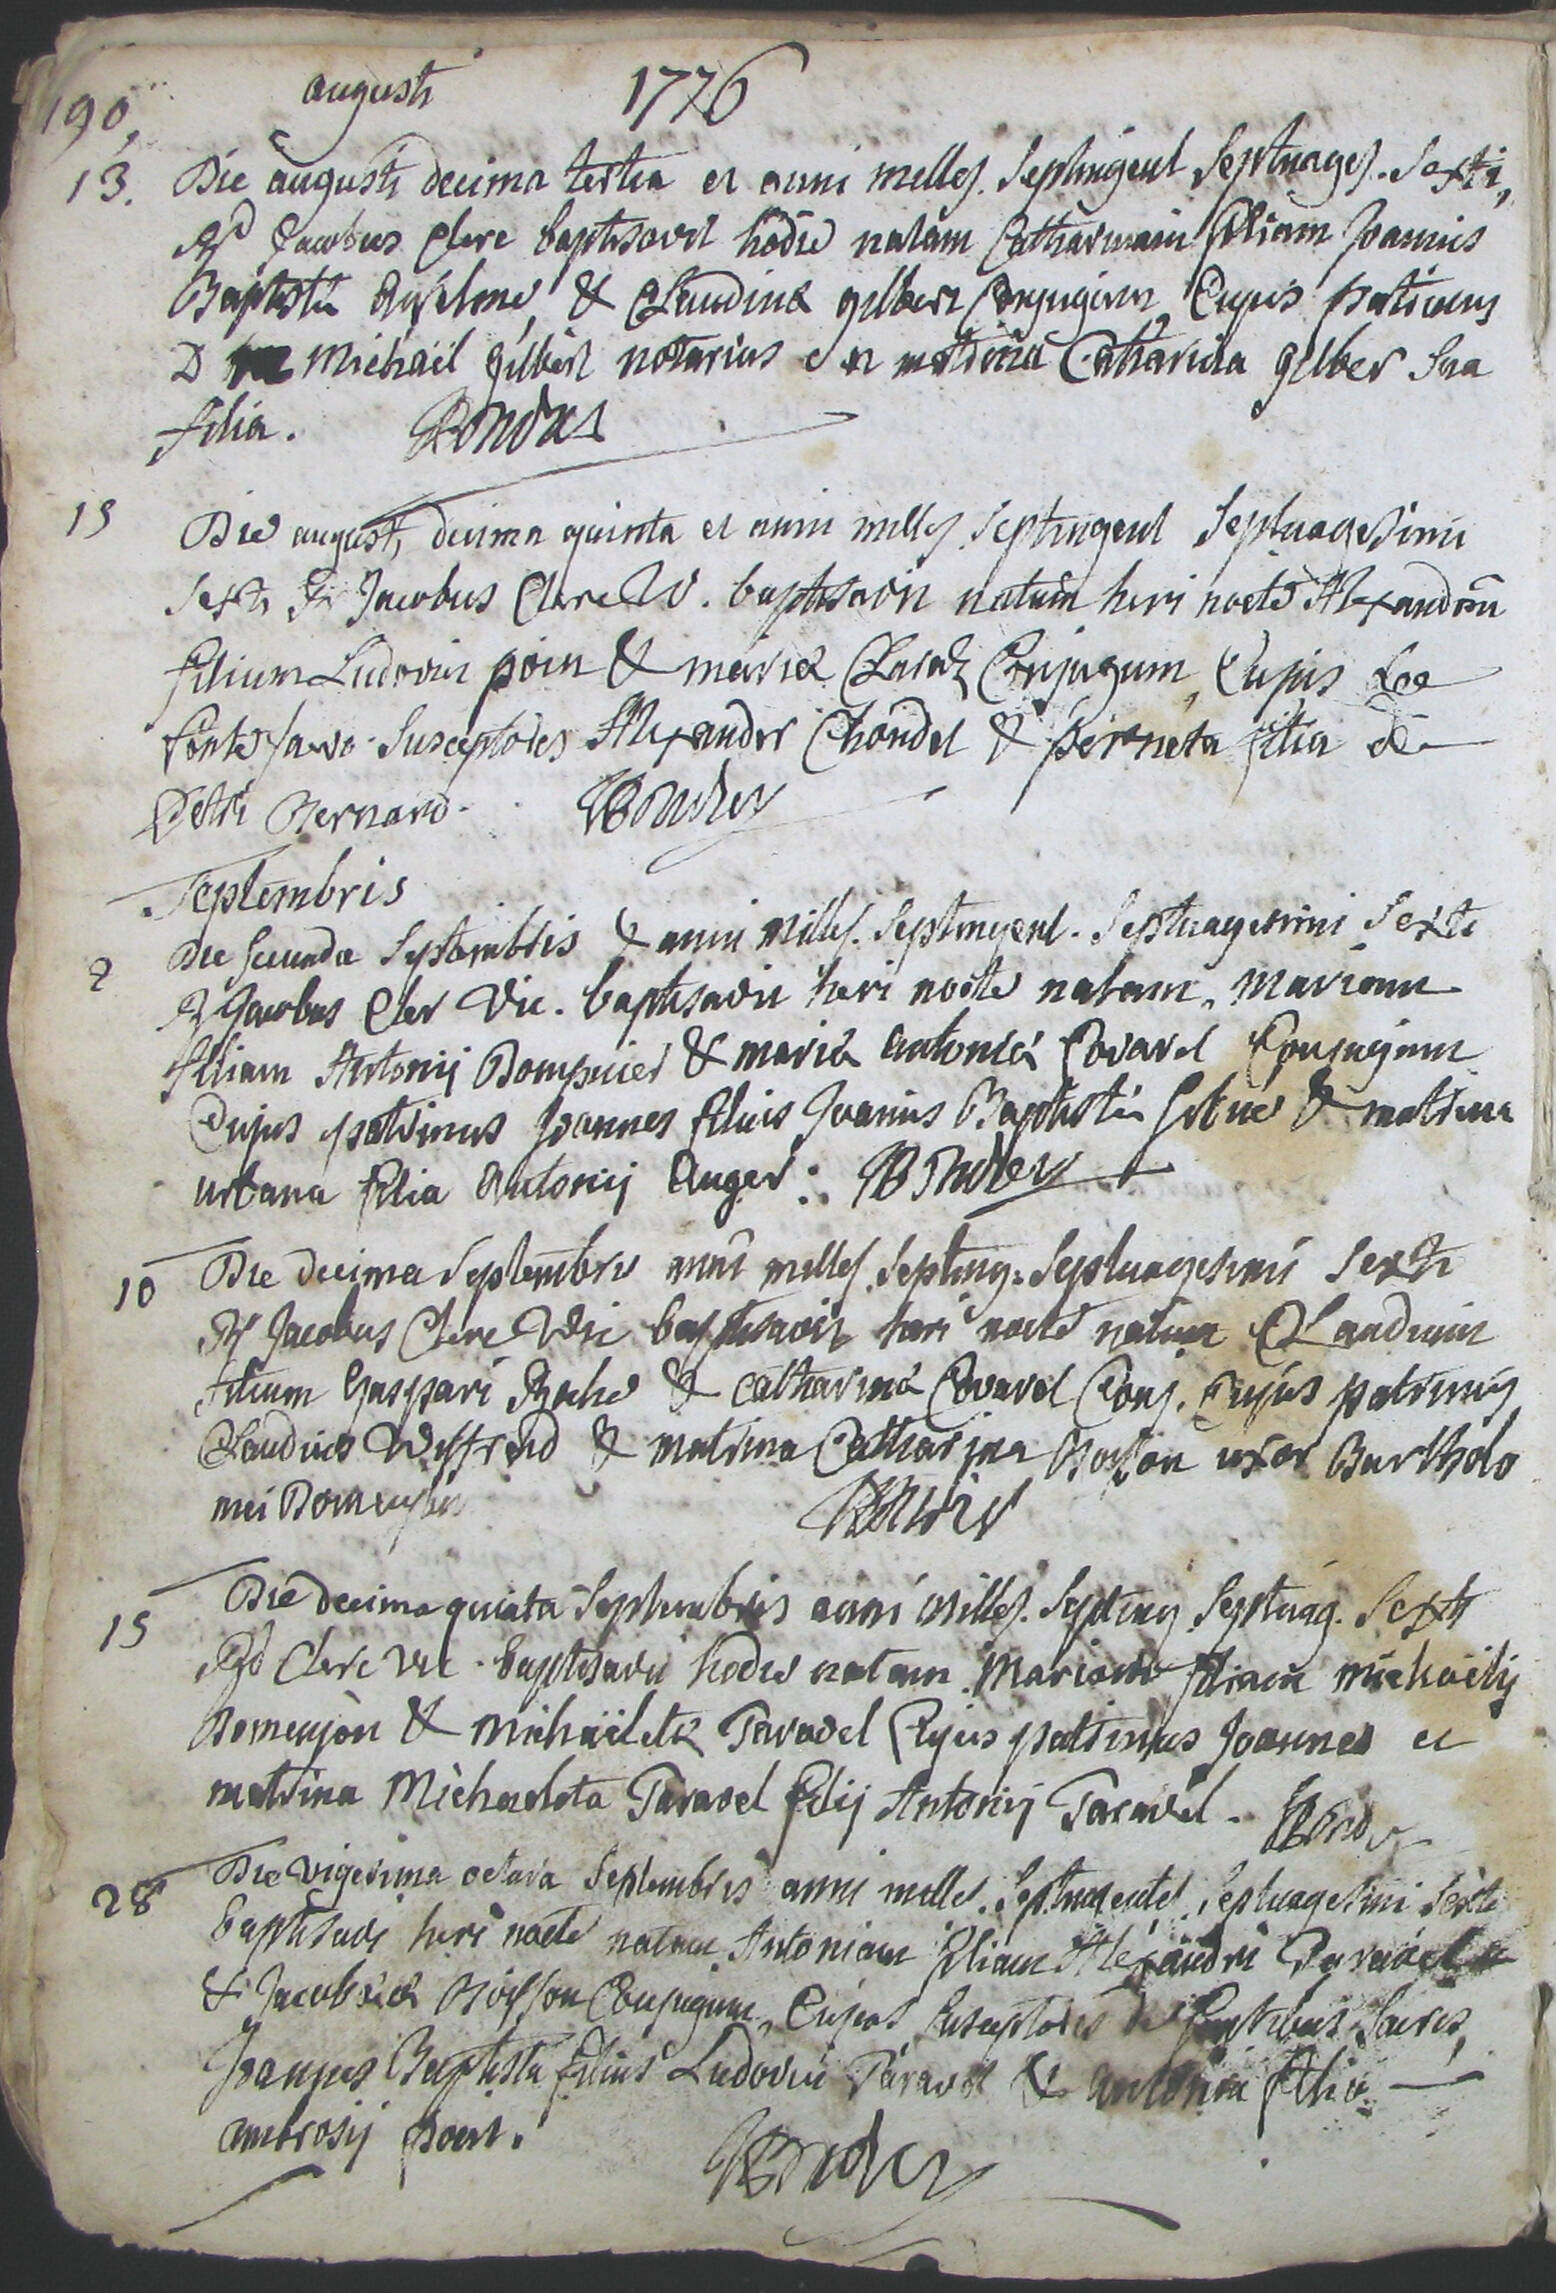 190,
augusti 1776
13. Die augusti decima tertia et anni milles. Septingent Septuages. Sexti,
Rd Jacobus Clerc baptisavit hodie natam Catharinam filiam Joannis
Baptistæ Anselme, & Claudinæ gilbert Conjugum, Cujus patrinus
D Michaël gilbert notarius et matrina Catharina gilber Sua
filia.
15 Die augusti decima quinta et anni milles. Septingent Septuagesimi
Sexti Rd Jacobus Clerc V. baptisavit natum heri nocte Alexandrum
filium Ludovici poin & mariæ Claraz Conjugum, Cujus de
fonte sacro Susceptores Alexander Chondel & perneta filia
Petri Bernard.
Septembris
2 Die Secunda Septembris & anni Milles. Septingent. Septuagesimi Sexti
Rd Jacobus Cler Vic. baptisavit heri nocte natam, mariam
filiam Antonij Dompnier & mariæ antoniæ Covarel Conjugum
Cujus patrinus Joannes filius Joannis Baptistæ & matrina
urbana filia Antonij Auger.
10 Die decima Septembris anni milles. Septing. Septuagesimi Sexti
Rd Jacobus Clerc Vic baptisavit heri nocte natum Claudium
filium Gaspari & Catharinæ Covarel Conj. Cujus patrinus
Claudius & matrina Catharina Boisson uxor Bartholo
mei
15 Die decima quinta Septembris anni milles. Septing Septuag. Sexti
Rd Clerc vic. baptisavit hodie natam Mariam filiam michaëlis
Domenjon & Michaëletæ Taravel Cujus patrinus Joannes et
matrina Michaeleta Taravel filij Antonij Taravel.
28 Die vigesima octava Septembris anni milles. Septingentes. Septuagesimi Sexti
baptisavi heri nocte natam Antoniam filiam Alexandri Taravel
& Jacobeæ Boisson Conjugum, Cujus Susceptores de fontibus Sacris,
Joannes Baptista filius Ludovici Taravel & antonia filia
ambrosij poent.